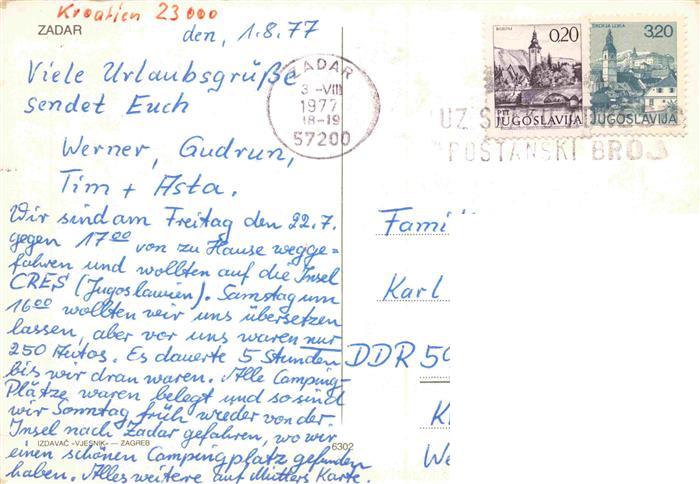 Kroatien 23000
ZADAR
den, 1.8.77
Viele Urlaubsgrüße
sendet Euch
Werner, Gudrun,
Tim + Asta.
Wir sind am Freitag den 22.7.
gegen 17⁰⁰ von zu Hause wegge-
fahren und wollten auf die Insel
CRES (Jugoslawien). Samstag um
16⁰⁰ wollten wir uns übersetzen
lassen, aber vor uns waren nur
250 Autos. Es dauerte 5 Stunden
bis wir dran waren. Alle Camping-
Plätze waren belegt und so sind
wir Sonntag früh wieder von der
Insel nach Zadar gefahren, wo wir
einen schönen Campingplatz gefunden
haben. Alles weitere auf Mutters Karte.
IZDAVAČ »VJESNIK« — ZAGREB
6302
ZADAR
3-VIII
1977
18-19
57200
0.20
PTT JUGOSLAVIJA
ŠKOFJA LOKA
3,20
JUGOSLAVIJA
UZ
POŠTANSKI BROJ
Fami
Karl
DDR